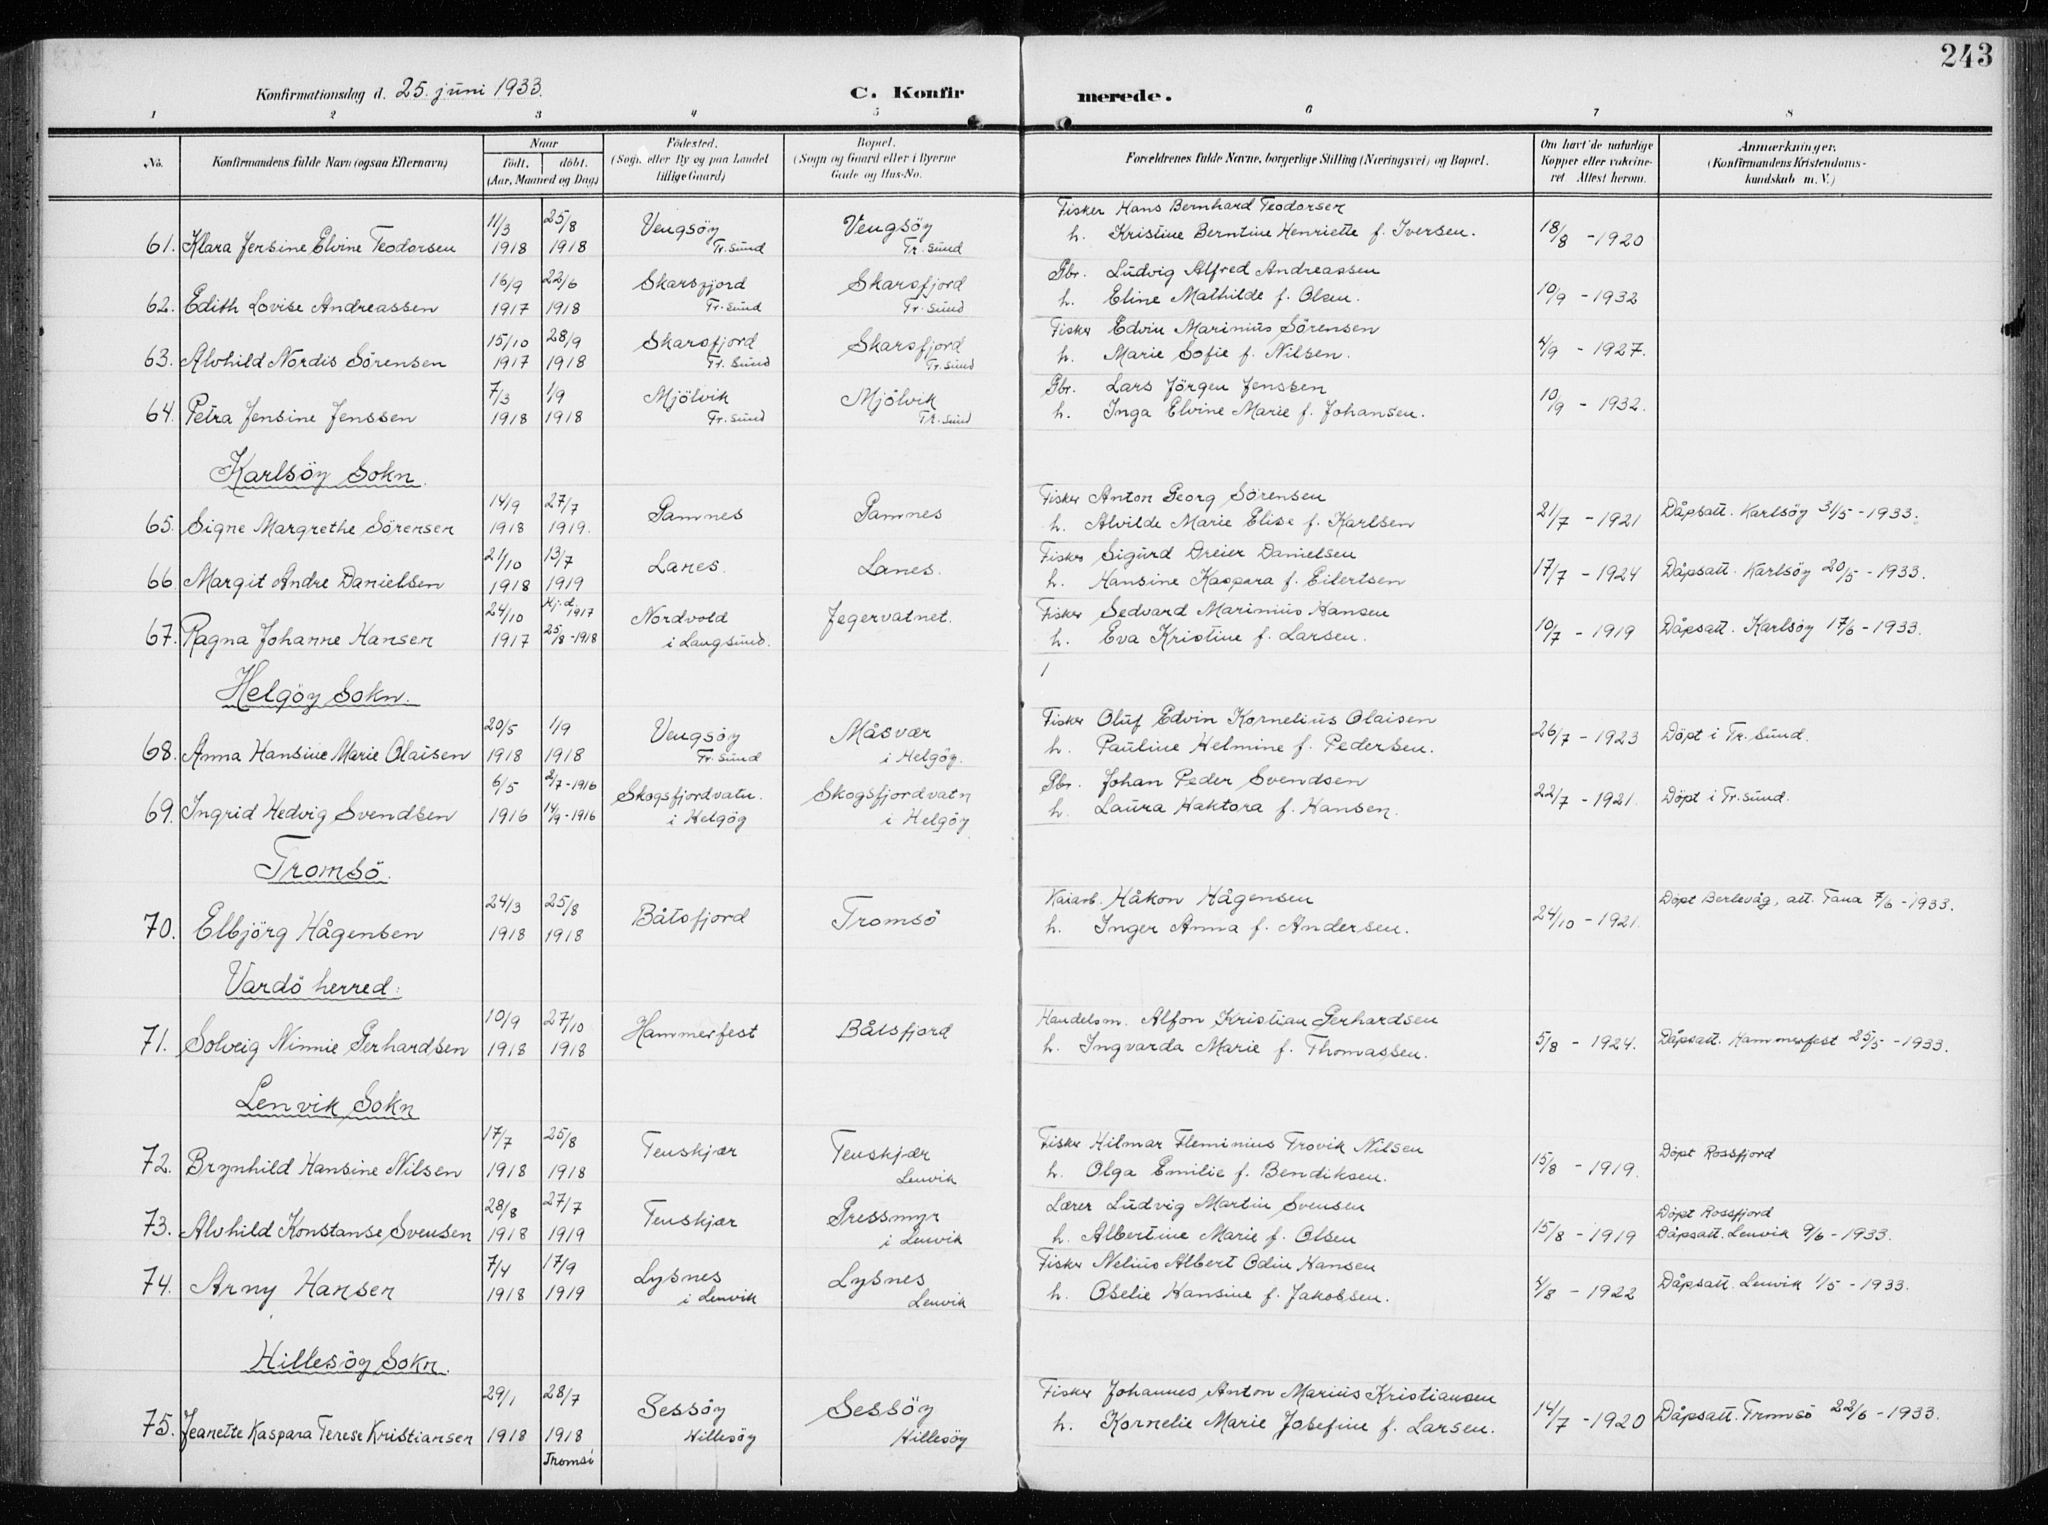 243
Konfirmationsdag d. 25. juni 1933.
C. Konfirmerede.
1 2 3 4 5 6 7 8
No. Konfirmandens fulde Navn (ogsaa Efternavn)
Naar født. døbt. (Aar, Maaned og Dag)
Fødested. (Sogn eller By og paa Landet tillige Gaard)
Bopæl. (Sogn og Gaard eller i Byerne Gade og Hus-No.
Forældrenes fulde Navne, borgerlige Stilling (Næringsvei) og Bopæl.
Om havt de naturlige Kopper eller vakcineret Attest herom.
Anmærkninger, (Konfirmandens Kristendomskundskab m. V.)
11/3 25/8 Vengsöy Vengsöy Fisker Hans Bernhard Teodorsen
61. Klara Jensine Elvine Teodorsen 1918 1918 Tr. sund Tr. sund h. Kristine Berntine Henriette f. Iversen. 18/8 - 1920
16/9 22/6 Skarsfjord Skarsfjord Gbr. Ludvig Alfred Andreassen
62. Edith Lovise Andreassen 1917 1918 Tr. sund Tr. sund h. Eline Mathilde f. Olsen. 10/9 - 1932
15/10 28/9 Skarsfjord Skarsfjord Fisker Edvin Marinius Sörensen
63. Alvhild Nordis Sörensen 1917 1918 Tr. sund Tr. sund h. Marie Sofie f. Nilsen. 4/9 - 1927.
7/3 1/9 Mjölvik Mjölvik Gbr. Lars Jörgen Jenssen
64. Petra Jensine Jenssen 1918 1918 Tr. sund Tr. sund h. Inga Elvine Marie f. Johansen. 10/9 - 1932.
Karlsöy Sokn.
14/9 27/7 Gamnes Gamnes Fisker Anton Georg Sörensen
65. Signe Margrethe Sörensen 1918 1919. h. Alvilde Marie Elise f. Karlsen 21/7 - 1921 Dåpsatt. Karlsöy 31/5 - 1933.
21/10 13/7 Lanes. Lanes. Fisker Sigurd Dreier Danielsen
66. Margit Andre Danielsen 1918 1919 h. Hansine Kaspara f. Eilertsen 17/7 - 1924 Dåpsatt. Karlsöy 20/5 - 1933.
24/10 Hj.d. 1917 Nordvold Jegervatnet. Fisker Sedvard Marinius Hansen
67. Ragna Johanne Hansen 1917 25/8 - 1918 i Langsund. h. Eva Kristine f. Larsen. 10/7 - 1919 Dåpsatt. Karlsöy 17/6 - 1933.
Helgöy Sokn.
20/5 1/9 Vengsöy Måsvær Fisker Oluf Edvin Kornelius Olaisen
68. Anna Hansine Marie Olaisen 1918 1918 Tr. sund i Helgöy. h. Pauline Helmine f. Pedersen. 26/7 - 1923 Döpt i Tr. sund.
6/5 2/7 - 1916 Skogsfjordvatn. Skogsfjordvatn Gbr. Johan Peder Svendsen
69. Ingrid Hedvig Svendsen 1916 14/9 - 1916 i Helgöy i Helgöy h. Laura Haktora f. Hansen. 22/7 - 1921. Döpt i Tr. sund.
Tromsö.
24/3 25/8 Båtsfjord Tromsö Kaiarb. Håkon Hågensen Döpt Berlevåg, att. Tana 7/6 - 1933.
70. Elbjörg Hågensen 1918 1918 h. Inger Anna f. Andersen. 24/10 - 1921.
Vardö herred:
10/9 27/10 Hammerfest Båtsfjord Handelsm. Alfon Kristian Gerhardsen
71. Solveig Ninnie Gerhardsen 1918 1918 h. Ingvarda Marie f. Thomassen. 5/8 - 1924. Dåpsatt. Hammerfest 25/5 - 1933.
Lenvik Sokn
17/7 25/8 Tenskjær Tenskjær Fisker Hilmar Fleminius Trovik Nilsen Döpt Rossfjord
72. Brynhild Hansine Nilsen 1918 1918 Lenvik h. Olga Emilie f. Bendiksen. 15/8 - 1919.
28/8 27/7 Tenskjær Gressmyr Lærer Ludvig Martin Svensen Döpt Rossfjord
73. Alvhild Konstanse Svensen 1918 1919 i Lenvik h. Albertine Marie f. Olsen 15/8 - 1919 Dåpsatt. Lenvik 9/6 - 1933.
7/4 17/9 Lysnes Lysnes Fisker Nelius Albert Odin Hansen
74. Arny Hansen 1918 1919 i Lenvik Lenvik h. Oselie Hansine f. Jakobsen. 4/8 - 1922 Dåpsatt. Lenvik 1/5 - 1933.
Hillesöy Sokn.
29/1 28/7 Sessöy Sessöy Fisker Johannes Anton Marius Kristiansen
75. Jeanette Kaspara Terese Kristiansen 1918 1918 Hillesöy Hillesöy h. Kornelie Marie Josefine f. Larsen. 14/7 - 1920 Dåpsatt. Tromsö 22/6 - 1933.
Tromsö